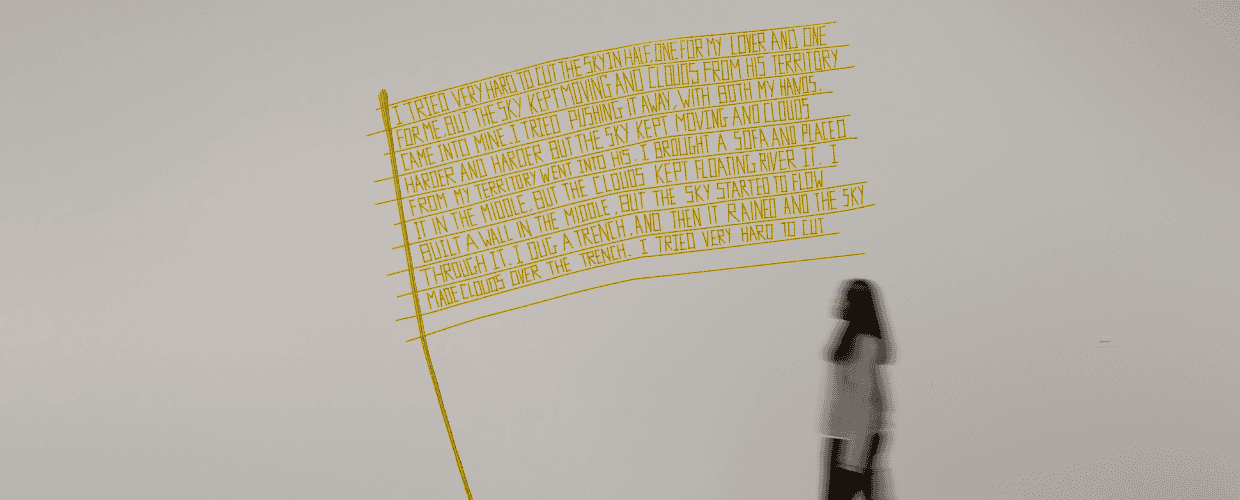 I TRIED VERY HARD TO CUT THE SKY IN HALF, ONE FOR MY LOVER AND ONE
FOR ME, BUT THE SKY KEPT MOVING AND CLOUDS FROM HIS TERRITORY
CAME INTO MINE. I TRIED PUSHING IT AWAY, WITH BOTH MY HANDS,
HARDER AND HARDER BUT THE SKY KEPT MOVING AND CLOUDS
FROM MY TERRITORY WENT INTO HIS. I BROUGHT A SOFA AND PLACED
IT IN THE MIDDLE, BUT THE CLOUDS KEPT FLOATING RIVER IT. I
BUILT A WALL IN THE MIDDLE, BUT THE SKY STARTED TO FLOW
THROUGH IT. I DUG A TRENCH, AND THEN IT RAINED AND THE SKY
MADE CLOUDS OVER THE TRENCH. I TRIED VERY HARD TO CUT